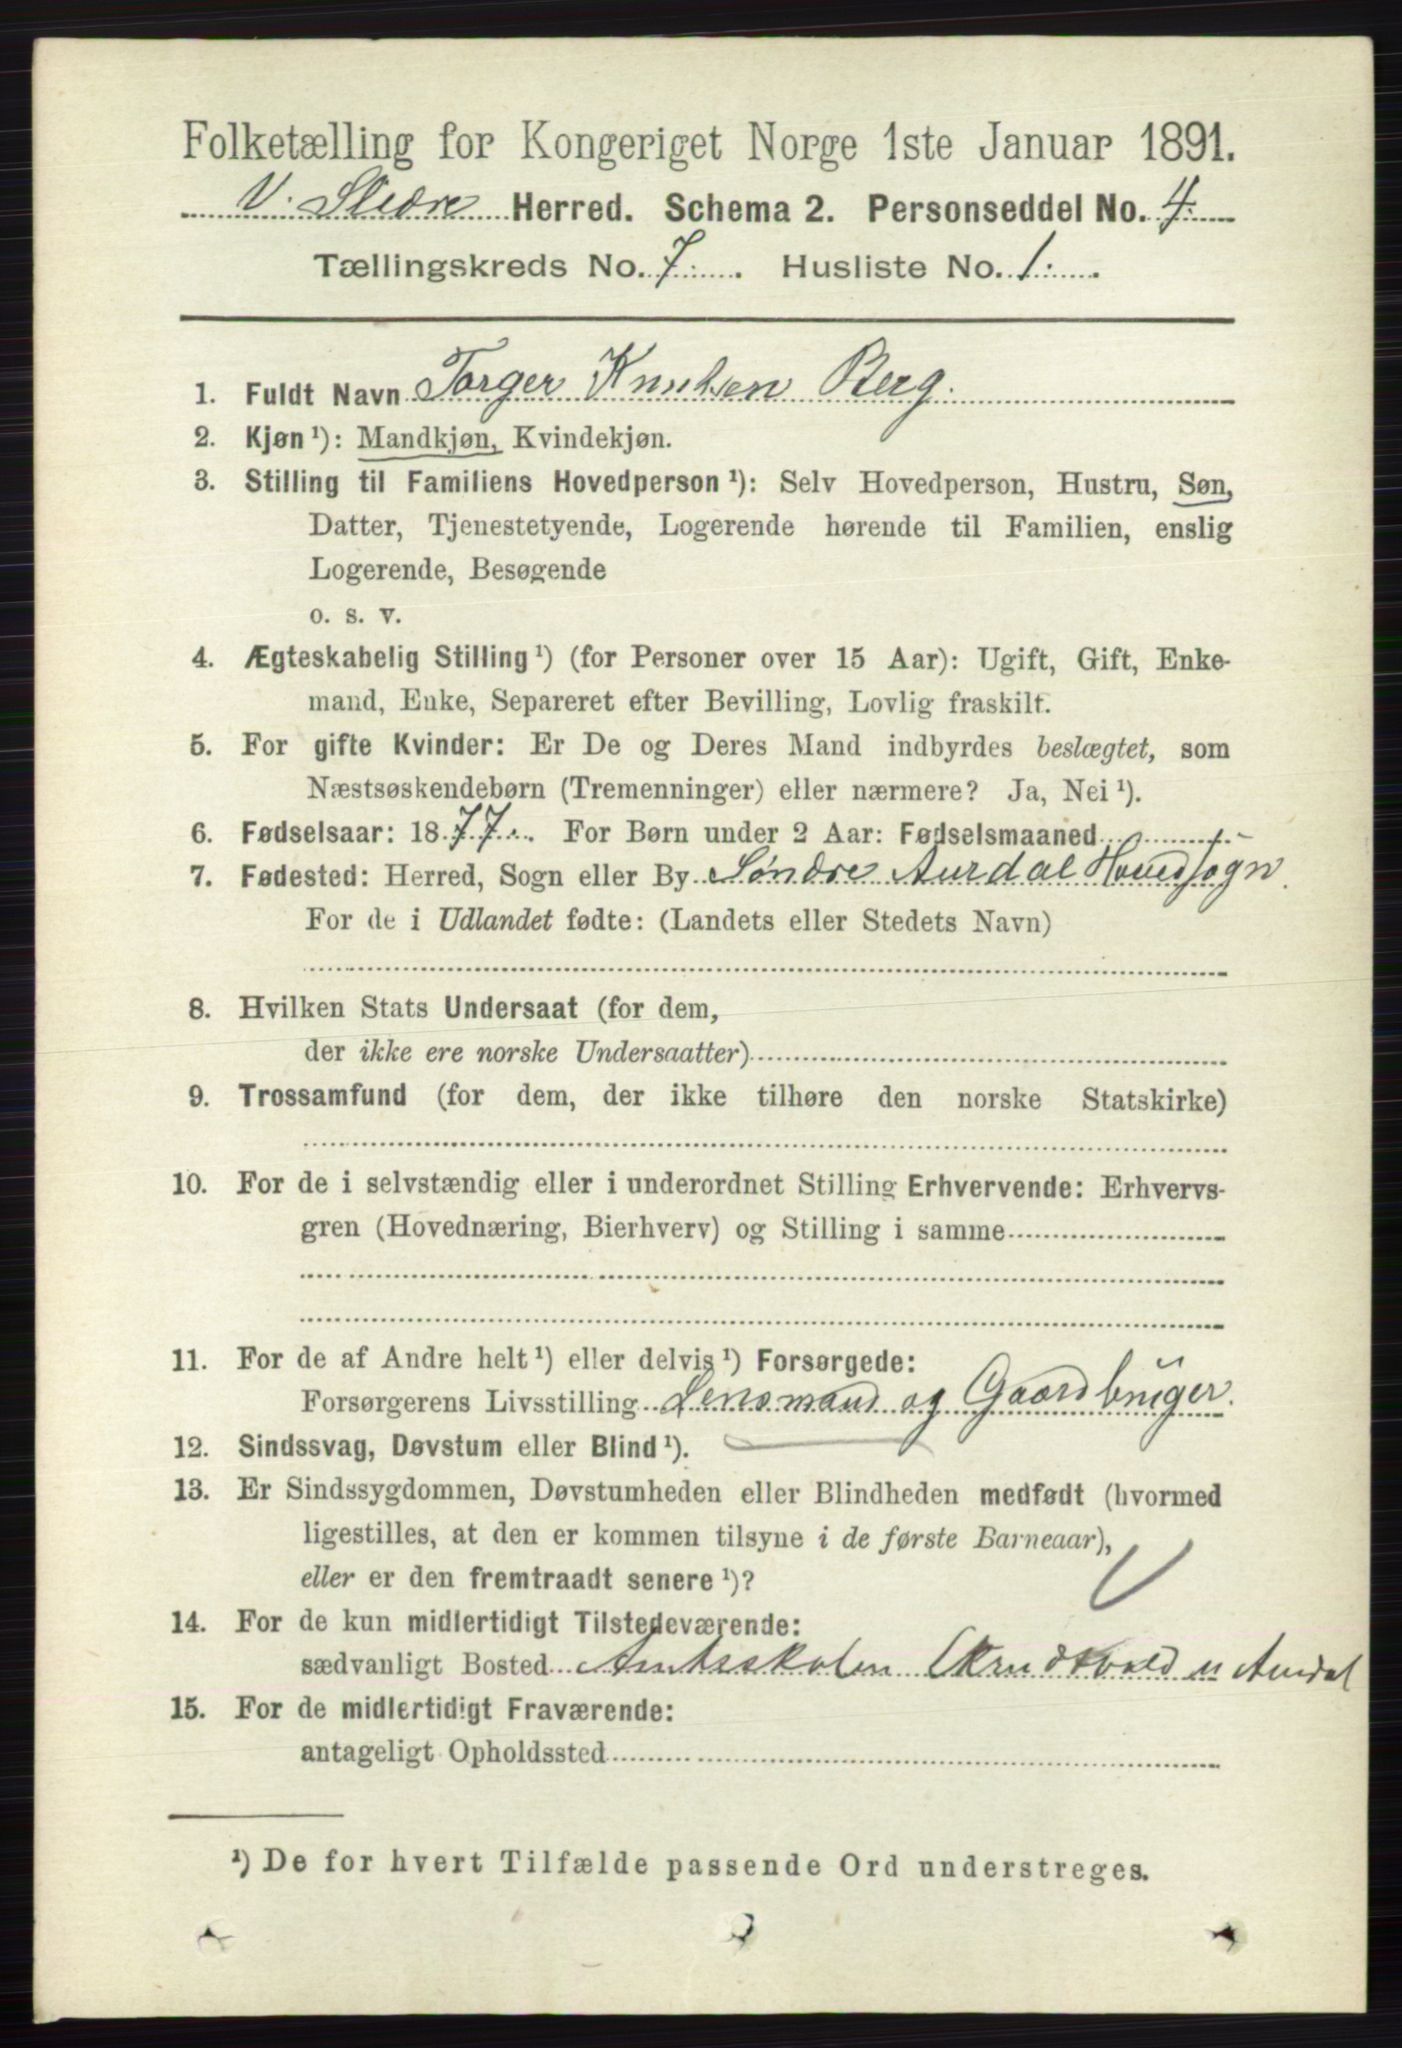 Folketælling for Kongeriget Norge 1ste Januar 1891.
V. Slidre Herred. Schema 2. Personseddel No. 4.
Tællingskreds No. 7. Husliste No. 1.
1. Fuldt Navn Torger Knutsen Berg.
2. Kjøn ¹): Mandkjøn, Kvindekjøn.
3. Stilling til Familiens Hovedperson ¹): Selv Hovedperson, Hustru, Søn,
Datter, Tjenestetyende, Logerende hørende til Familien, enslig
Logerende, Besøgende
o. s. v.
4. Ægteskabelig Stilling ¹) (for Personer over 15 Aar): Ugift, Gift, Enke-
mand, Enke, Separeret efter Bevilling, Lovlig fraskilt.
5. For gifte Kvinder: Er De og Deres Mand indbyrdes beslægtet, som
Næstsøskendebørn (Tremenninger) eller nærmere? Ja, Nei ¹).
6. Fødselsaar: 1877. For Børn under 2 Aar: Fødselsmaaned
7. Fødested: Herred, Sogn eller By Søndre Aurdal Hovedsogn.
For de i Udlandet fødte: (Landets eller Stedets Navn)
8. Hvilken Stats Undersaat (for dem,
der ikke ere norske Undersaatter)
9. Trossamfund (for dem, der ikke tilhøre den norske Statskirke)
10. For de i selvstændig eller i underordnet Stilling Erhvervende: Erhvervs-
gren (Hovednæring, Bierhverv) og Stilling i samme
11. For de af Andre helt ¹) eller delvis ¹) Forsørgede:
Forsørgerens Livsstilling Lensmand og Gaardbruger.
12. Sindssvag, Døvstum eller Blind ¹).
13. Er Sindssygdommen, Døvstumheden eller Blindheden medfødt (hvormed
ligestilles, at den er kommen tilsyne i de første Barneaar),
eller er den fremtraadt senere ¹)?
14. For de kun midlertidigt Tilstedeværende:
sædvanligt Bosted Amtsskolen Aurdal
15. For de midlertidigt Fraværende:
antageligt Opholdssted
¹) De for hvert Tilfælde passende Ord understreges.